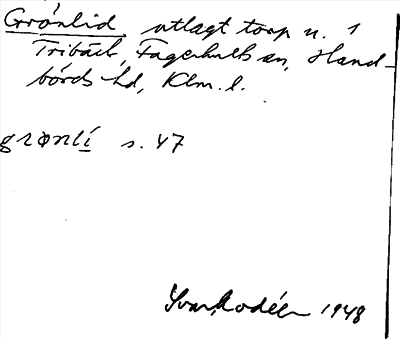 Grönlid utlagt torp u. 1
Tribäck, Fagerhults sn, Hand-
börds hd, Klm. l.
grønlí s. 47
Ivar Modéer 1948